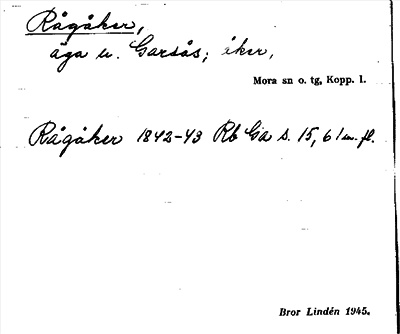 Rågåker,
äga u. Garsås; åker,
Mora sn o. tg, Kopp. l.
Rågåker 1842-43 Rb Ga s. 15, 61 m. fl.
Bror Lindén 1945.